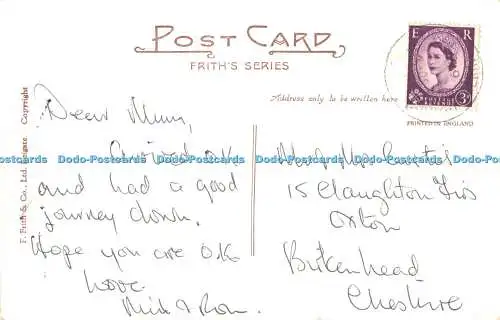 POST CARD
FRITH'S SERIES
Address only to be written here
E R
POSTAGE REVENUE
3D
PRINTED IN ENGLAND
F. Frith & Co., Ltd. Reigate Copyright
Dear Mum,
Arrived O.K
and had a good
journey down.
Hope you are O.K
love
Mick & Ron.
Mrs M.
15 Claughton Firs
Oxton
Birkenhead
Cheshire
Dodo-Postcards Dodo-Postcards Dodo-Postcards Dodo-Postcards Dodo-Postcards Dodo-Postcards